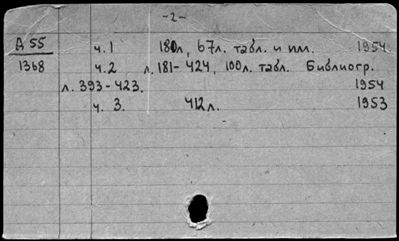 -2-
Д 55 ч. 1 180л, 67л. табл. и пл. 1954
1368 ч. 2 л. 181-424, 100л. табл. Библиогр.
л. 393-423. 1954
ч. 3. 412л. 1953